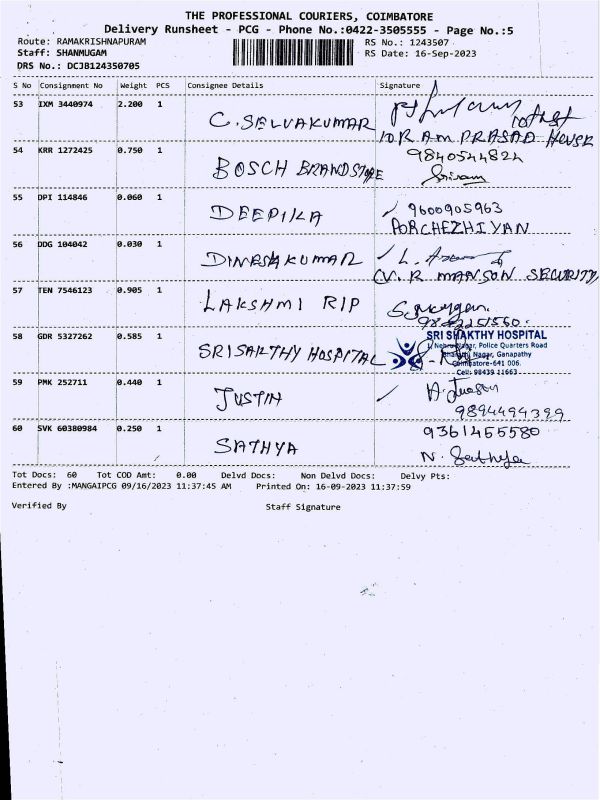 THE PROFESSIONAL COURIERS, COIMBATORE
Delivery Runsheet - PCG - Phone No.:0422-3505555 - Page No.:5
Route: RAMAKRISHNAPURAM RS No.: 1243507
Staff: SHANMUGAM RS Date: 16-Sep-2023
DRS No.: DCJB124350705
S No Consignment No Weight PCS Consignee Details Signature
53 IXM 3440974 2.200 1 C. SELVAKUMAR
10 RAM PRASAD HOUSE
54 KRR 1272425 0.750 1 BOSCH BRANDSTORE 9840544824
Sriram
55 DPI 114846 0.060 1 DEEPIKA 9600905963
PORCHEZHIYAN
56 DDG 104042 0.030 1 DINESHKUMAR L.
V. R MANSON SECURITY
57 TEN 7546123 0.905 1 LAKSHMI RIP
58 GDR 5327262 0.585 1 SRI SAKTHY HOSPITAL SRI SHAKTHY HOSPITAL
Nehru Nagar, Police Quarters Road
Bharathi Nagar, Ganapathy
Coimbatore-641 006.
Cell: 98439 11663
59 PMK 252711 0.440 1 JUSTIN
9894494399
60 SVK 60380984 0.250 1 SATHYA 9361455580
N. Sathya
Tot Docs: 60 Tot COD Amt: 0.00 Delvd Docs: Non Delvd Docs: Delvy Pts:
Entered By :MANGAIPCG 09/16/2023 11:37:45 AM Printed On: 16-09-2023 11:37:59
Verified By Staff Signature